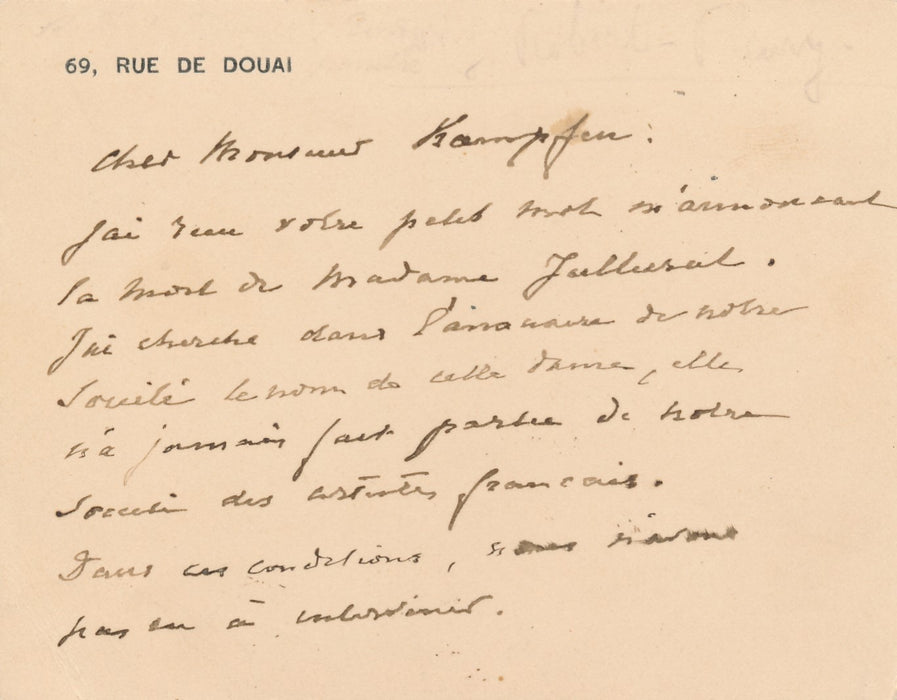 69, RUE DE DOUAI
Cher Monsieur Kaempfen :
J'ai reçu votre petit mot m'annoncant
la mort de Madame
J'ai cherché dans l'annuaire de notre
Société le nom de cette dame, elle
n'a jamais fait partie de notre
Société des artistes français.
Dans ces conditions, nous n'avons
pas eu à intervenir.